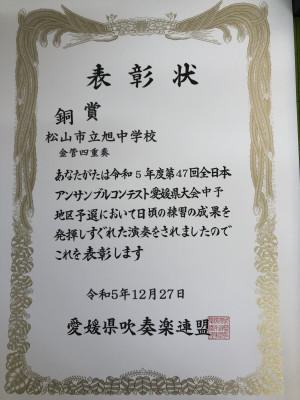 表彰状
銅賞
松山市立旭中学校
金管四重奏
あなたがたは令和5年度第47回全日本
アンサンブルコンテスト愛媛県大会中予
地区予選において日頃の練習の成果を
発揮しすぐれた演奏をされましたので
これを表彰します
令和5年12月27日
愛媛県吹奏楽連盟